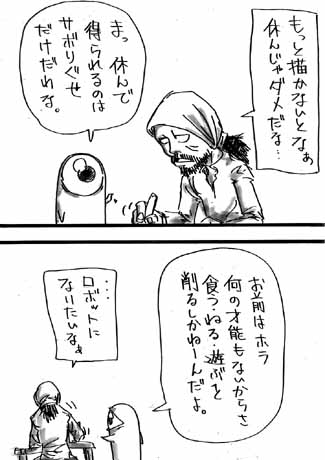 もっと描かないとなぁ
休んじゃダメだな…
まっ休んで
得られるのは
サボりぐせ
だけだわな。
お前はホラ
何の才能もないからさ
食う・ねる・遊ぶを
削るしかねーんだよ。
…
ロボットに
なりたいなぁ